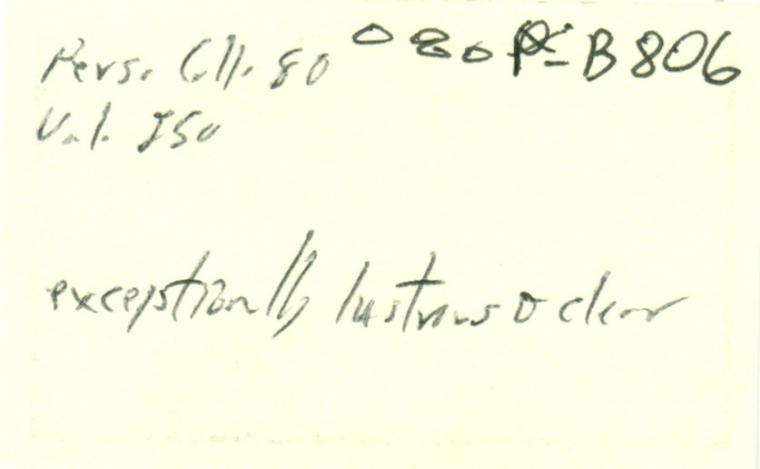 Pers. Coll. 80 080 P-B806
Val. 750
exceptionally lustrous & clear